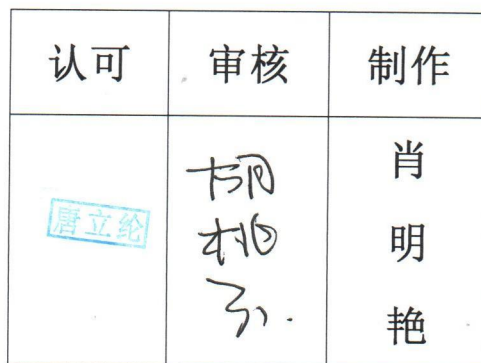 认可 审核 制作
唐立纶
胡
桃
肖
明
艳